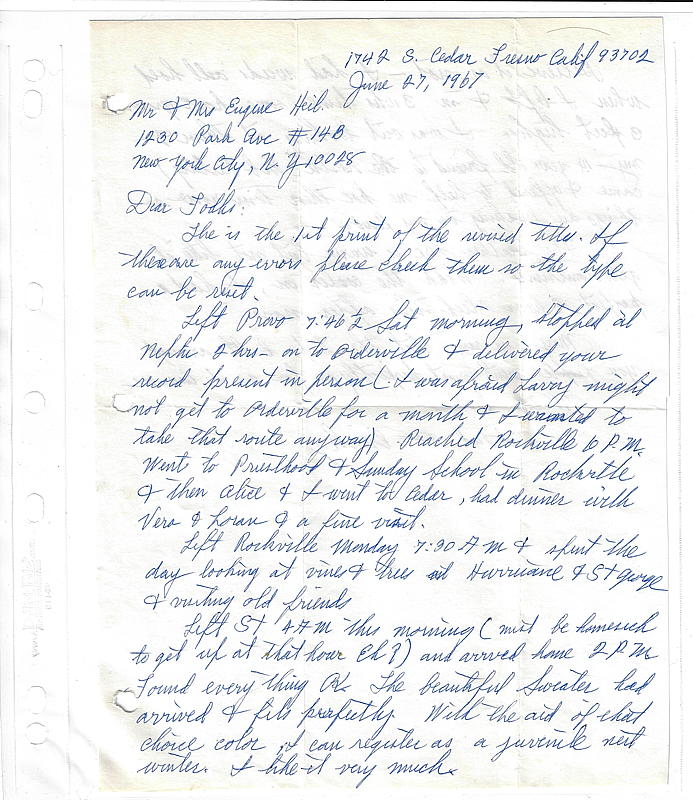 1742 S. Cedar Fresno Calif 93702
June 27, 1967
Mr & Mrs Eugene Heil.
1230 Park Ave # 14B
New York City, N. Y 10028
Dear Folks:
The is the 1st print of the revised title. If
there are any errors please check them so the type
can be reset.
Left Provo 7:46½ Sat morning, stopped at
Nephi 2 hrs - on to Orderville & delivered your
record present in person (I was afraid Larry might
not get to Orderville for a month & I wanted to
take that route anyway) Reached Rockville 6 P.M.
Went to Priesthood & Sunday School in Rockville
& then Alice & I went to Cedar, had dinner with
Vera & Loran & a fine visit.
Left Rockville Monday 7:30 AM & spent the
day looking at vines & trees at Hurricane & St George
& visiting old friends
Left St 4 AM this morning (must be homesick
to get up at that hour Eh?) and arrived home 2 P.M.
Found every thing OK. The beautiful Sweater had
arrived & fits perfectly. With the aid of that
choice color, I can register as a juvenile next
winter. I like it very much.